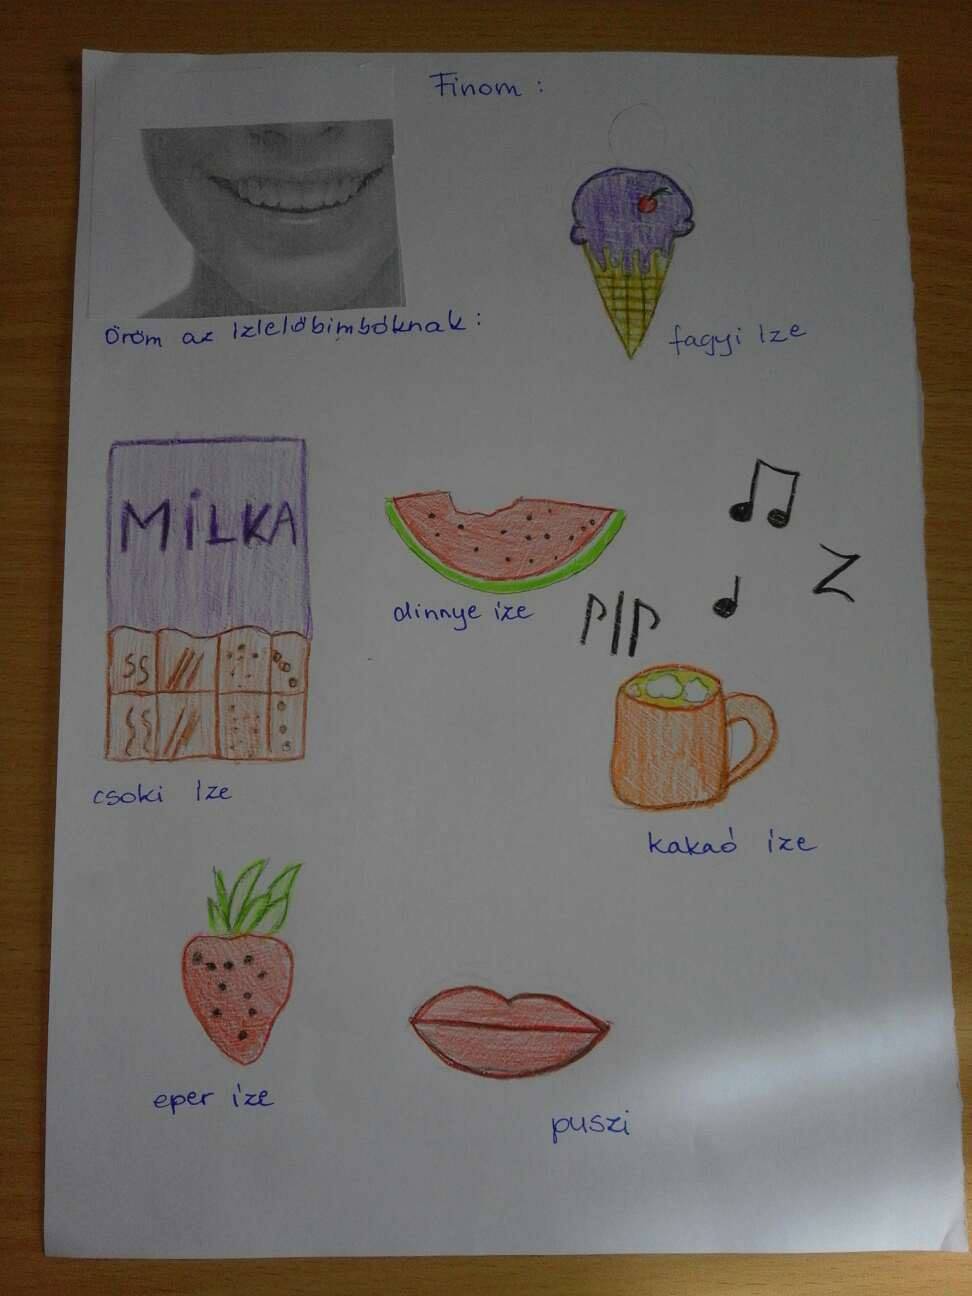 Finom :
Öröm az ízlelőbimbóknak :
fagyi íze
MiLKA
dinnye íze
csoki íze
kakaó íze
eper íze
puszi